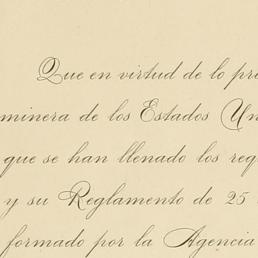 Que en virtud de lo pre
minera de los Estados Un
que se han llenado los req
y su Reglamento de 25
formado por la Agencia